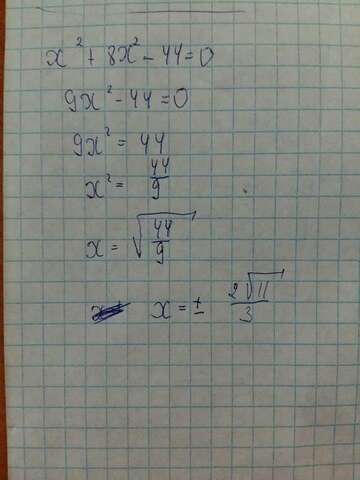 x² + 8x² - 44 = 0
9x² - 44 = 0
9x² = 44
x² = 44/9
x = √44/9
x = ± 2√11/3